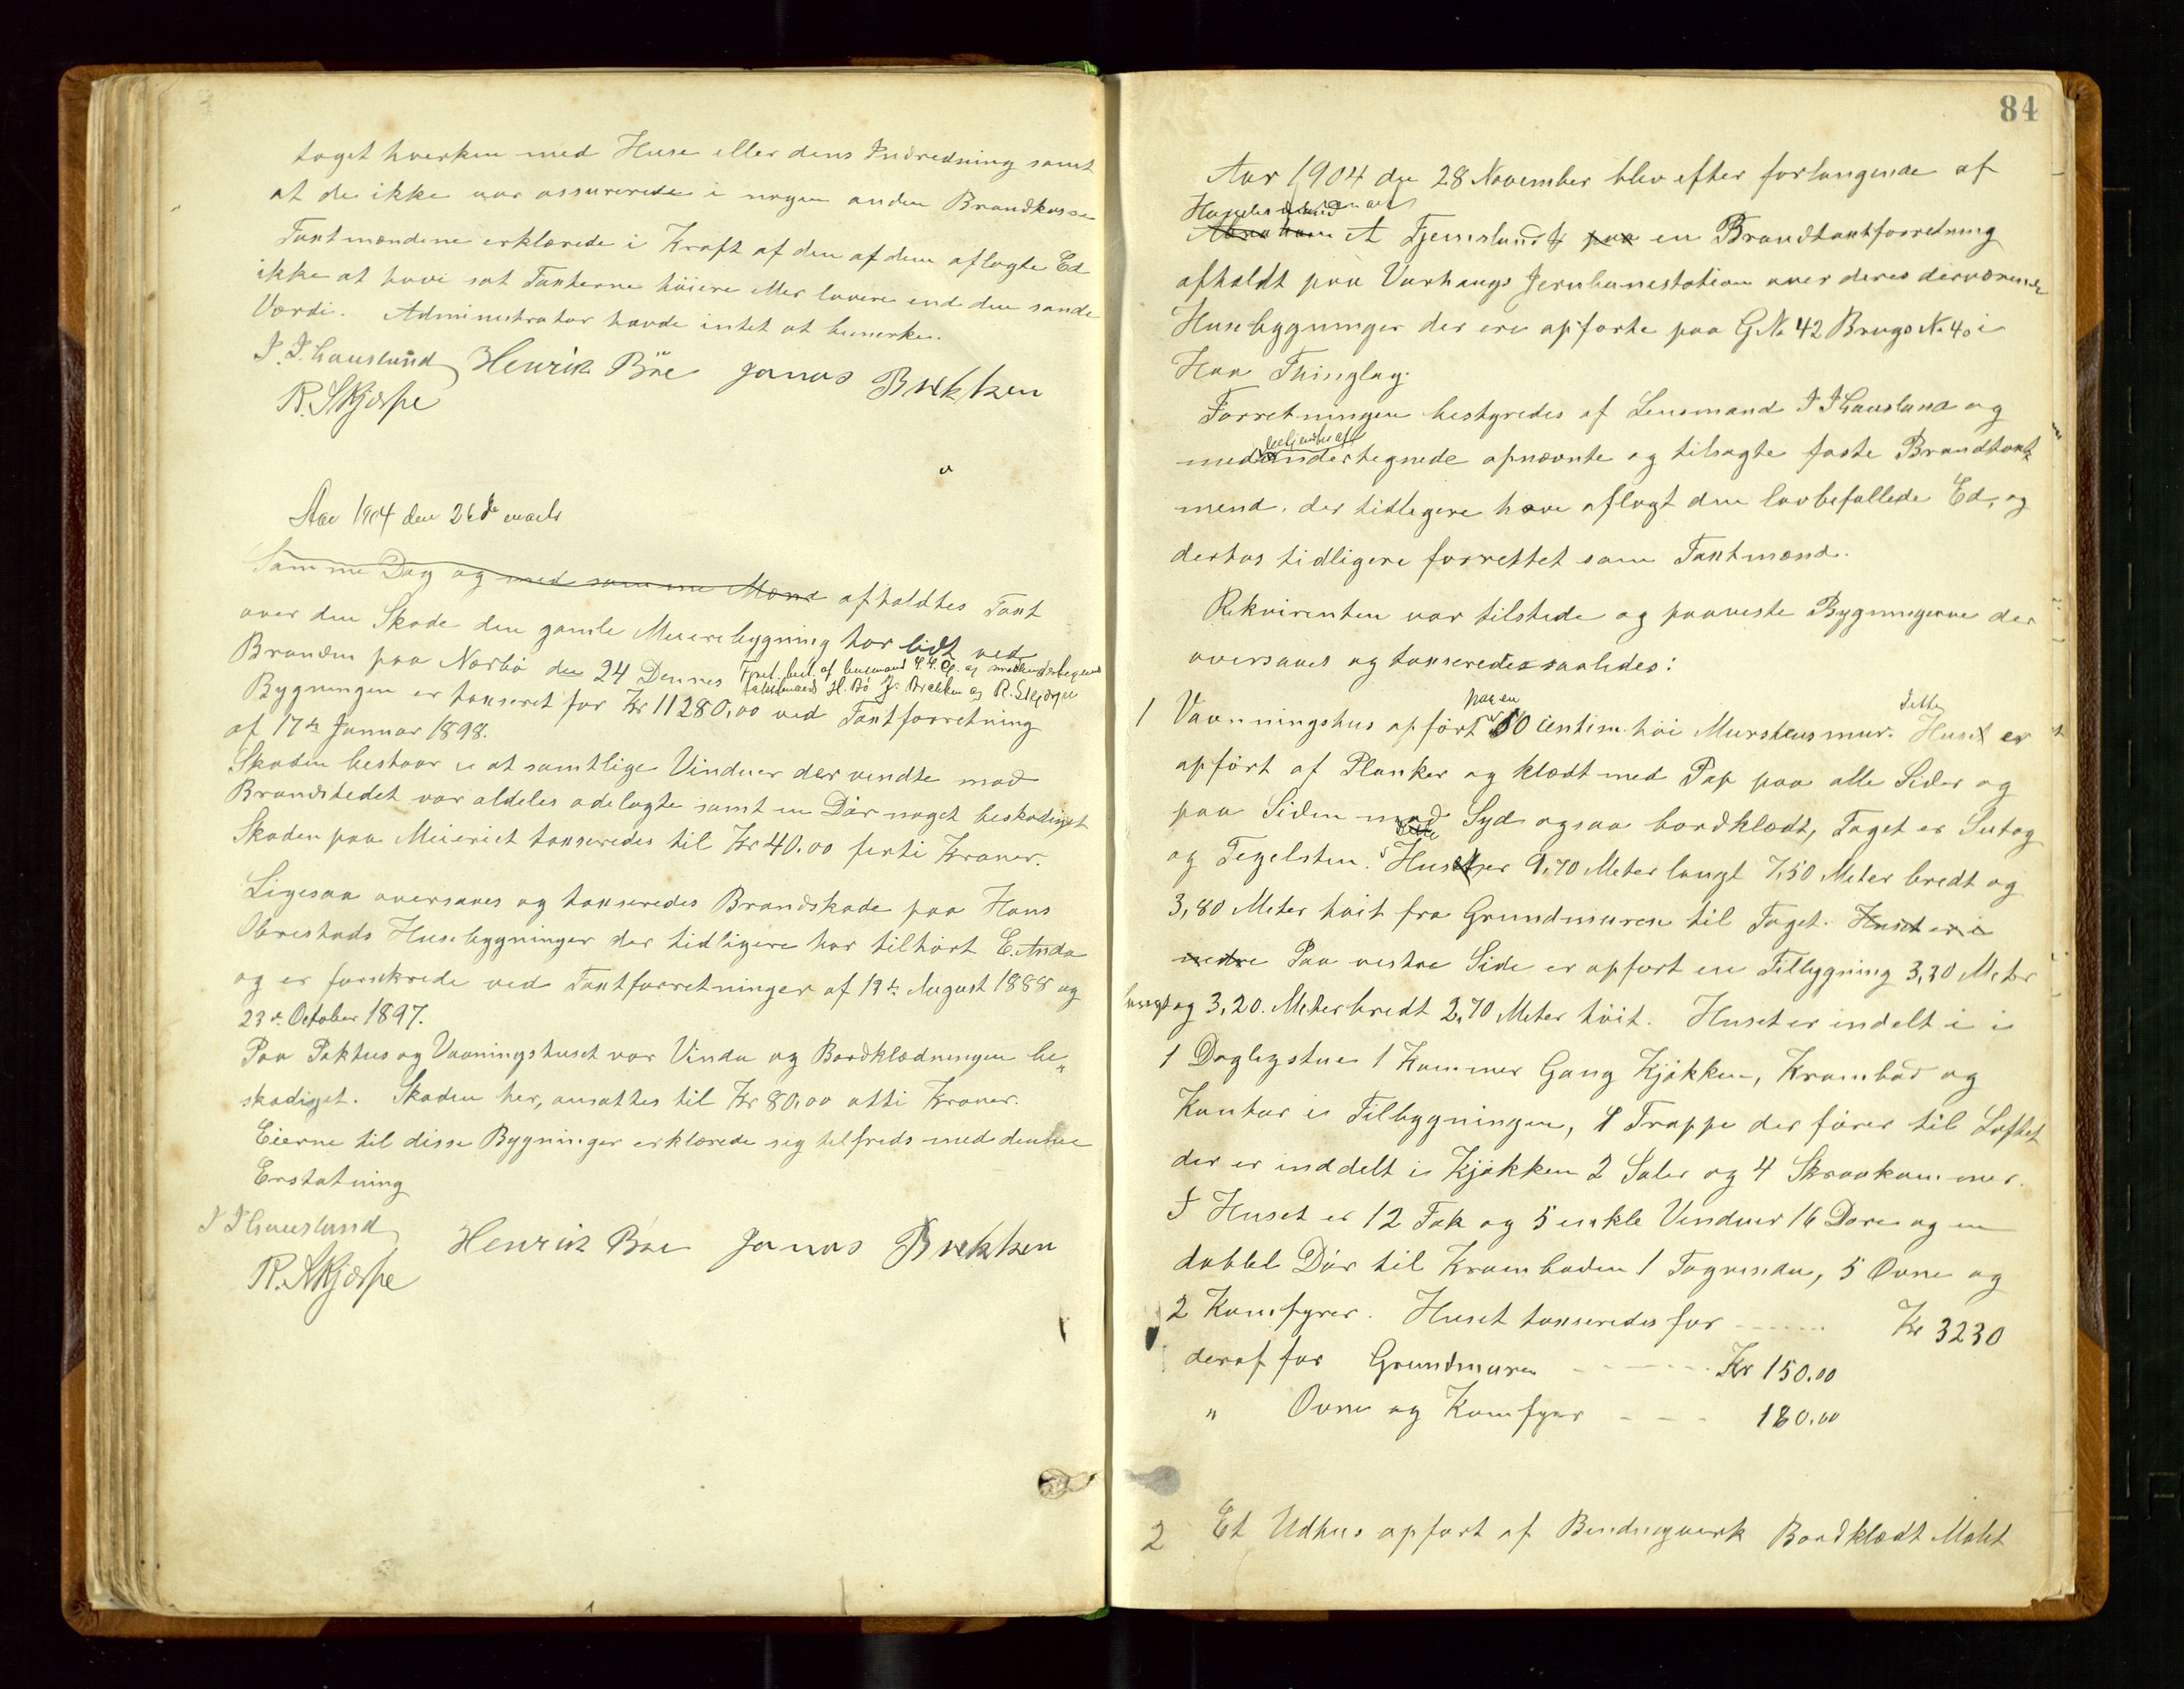 taget hverken med Huse eller dens Indredning samt
at de ikke var assurerede i nogen anden Brandkasse
Taxtmændene erklærede i Kraft af den af dem aflagte Ed
ikke at have sat Taxterne høiere eller lavere end den sande
Værdi. Administrator havde intet at bemerke.
Henrik Bøe Jonas Brekken
R. Skjerpe
Aar 1904 den 26de marts
Samme Dag og med samme Mænd afholdtes Taxt
over den Skade den gamle Meieribygning har lidt ved
Branden paa Nærbø den 24 Dennes
Bygningen er taxseret for Kr 11280,00 ved Taxtforretning
af 17de Januar 1898.
Skaden bestaar i at samtlige Vinduer der vendte mod
Brandstedet var aldeles ødelagte samt en Dør noget beskadiget
Skaden paa Meieriet taxseredes til Kr 40.00 førti Kroner.
Ligesaa oversaaes og taxseredes Brandskade paa Hans
Obrestads Husebygninger der tidligere har tilhørt E. Anda
og er forsikrede ved Taxtforretninger af 13de August 1888 og
23de October 1897.
Paa Pakhus og Vaaningshuset var Vindu og Bordklædningen be„
skadiget. Skaden her, ansattes til Kr 80,00 otti Kroner.
Eierne til disse Bygninger erklærede sig tilfreds med denne
Erstatning
Henrik Bøe Jonas Brekken
R. Skjerpe
84
Aar 1904 den 28 November blev efter forlangende af
A Fjermeland paa en Brandtaxtforretning
afholdt paa Varhaugs Jernbanestation over deres derværende
Husebygninger der ere opførte paa GNo 42 Brugs No 40 i
Haa Thinglag.
Forretningen bestyredes af Lensmand og
med undertegnede opnævnte og tilsagte faste Brandtaxt
mend. der tidligere have aflagt den lovbefallede Ed, og
dertos tidligere forrettet som Taxtmænd.
Rekvirenten var tilstede og paaviste Bygningerne der
oversaaes og taxseredes saaledes:
paa en Dette
1 Vaanningshus opført 50 centim. høi Murstensmur. Huset er
opført af Planker og klædt med Pap paa alle Sider og
paa Siden mod Syd ogsaa bordklædt, Taget er Sutag
og Tegelsten. Huset er 9,70 Meter langt 7,50 Meter bredt og
3,80 Meter høit fra Grundmuren til Taget. Huset er i
nedre Paa vestre Side er opført en Tilbygning 3,30 Meter
langt og 3,20. Meter bredt 2,70 Meter høit. Huset er indelt i i
1 Dagligstue 1 Kammer Gang Kjøkken, Krambod og
Kontor i Tilbygningen, 1 Trappe der fører til Loftet
der er inddelt i Kjøkken 2 Saler og 4 Skraakammer.
I Huset er 12 Fak og 5 enkle Vinduer 16 Døre og en
dobbel Dør til Kramboden 1 Tagvindu, 5 Ovne og
2 Komfyrer. Huset taxseredes for ------ Kr 3230
deraf for Grundmuren ------ Kr 150.00
" Ovne og Komfyr - - - 180.00
2 Et Udhus opført af Bindingverk Bordklædt Malet